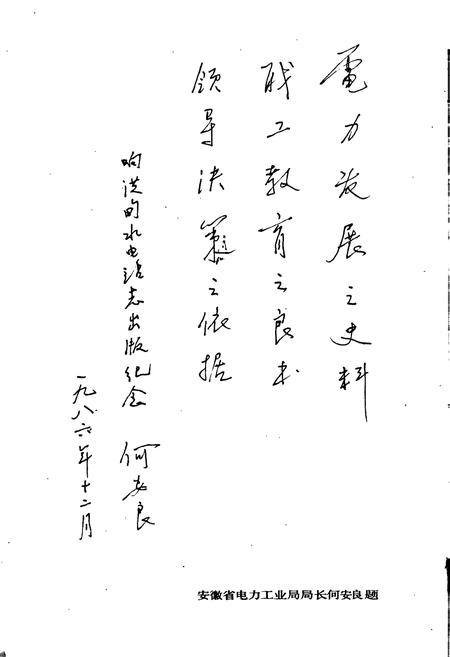 電力发展之史料
职工教育之良书
领导决策之依据
响洪甸水电站志出版纪念
何安良
一九八六年十二月
安徽省电力工业局局长何安良题